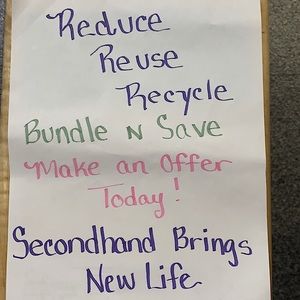 Reduce
Reuse
Recycle
Bundle N Save
Make an Offer
Today!
Secondhand Brings
New Life